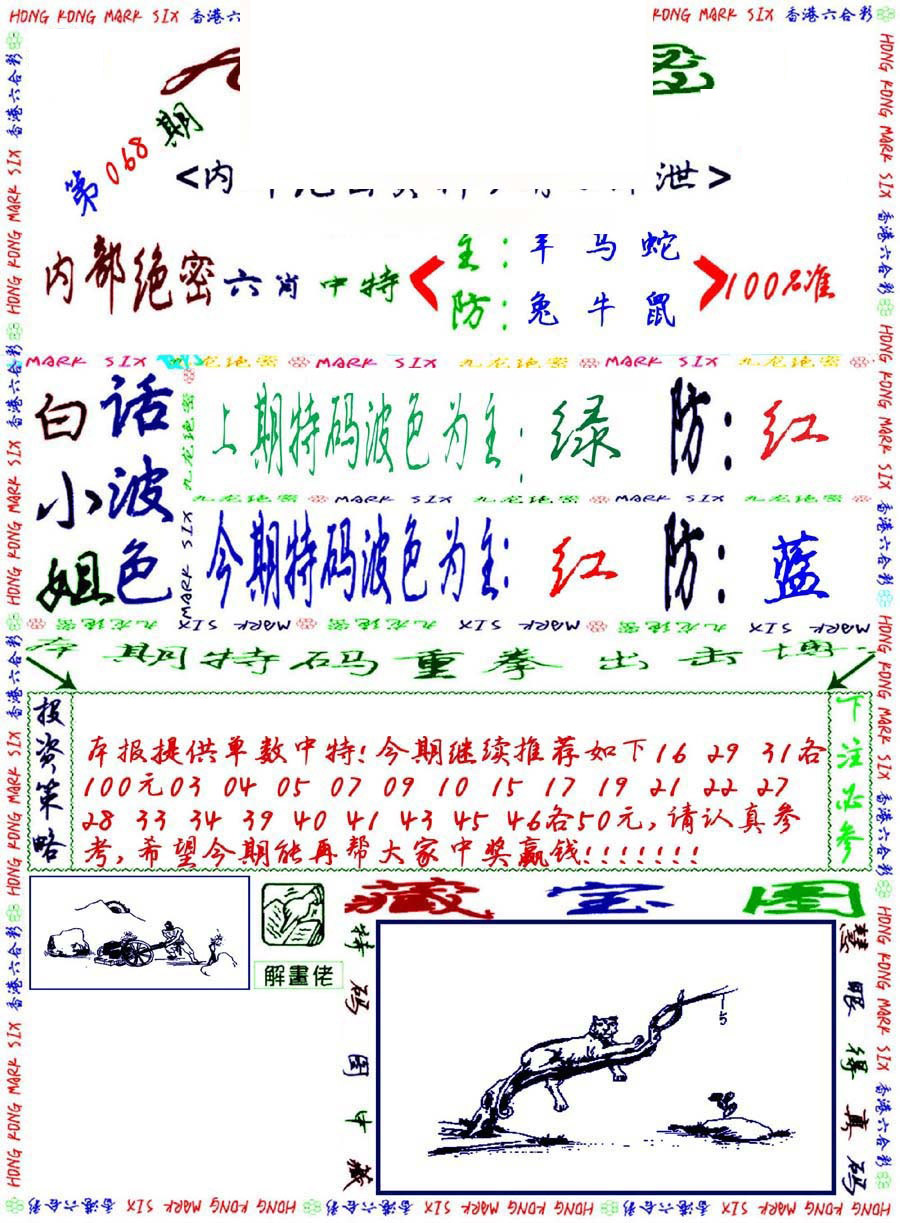 HONG KONG MARK SIX 香港六合彩
KONG MARK SIX 香港六合彩
第068期
<内
泄>
内部绝密六肖中特
主：羊 马 蛇
防：兔 牛 鼠
100%准
MARK SIX 九龙绝密 MARK SIX 九龙绝密 MARK SIX 九龙绝密
白话
小波
姐色
上期特码波色为主：绿 防：红
九龙绝密 MARK SIX 九龙绝密 MARK SIX 九龙绝密
今期特码波色为主：红 防：蓝
MARK SIX 九龙绝密 SIX MARK 九龙绝密 SIX MARK 九龙绝密 SIX MARK
期特码重拳出击
投资策略
本报提供单数中特!今期继续推荐如下16 29 31各
100元03 04 05 07 09 10 15 17 19 21 22 27
28 33 34 39 40 41 43 45 46各50元,请认真参
考,希望今期能再帮大家中奖赢钱!!!!!!!
下注必参
解畫佬
藏宝图
特码图中藏
慧眼得真码
15
HONG KONG MARK SIX 香港六合彩